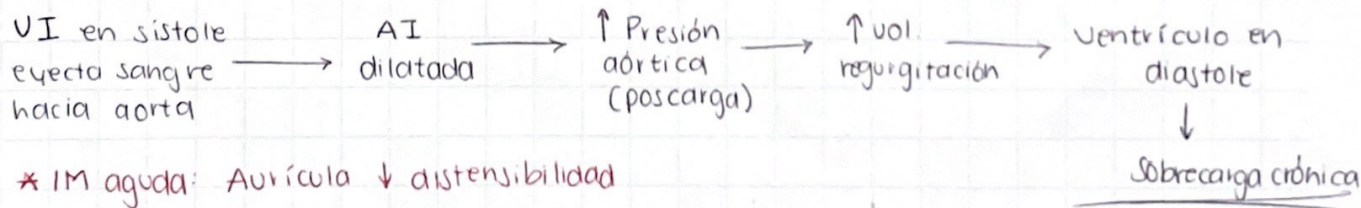 VI en sistole
eyecta sangre
hacia aorta
→
AI
dilatada
→
↑ Presión
aórtica
(poscarga)
→
↑ vol.
regurgitación
→
Ventrículo en
diastole
↓
Sobrecarga crónica
* IM aguda: Aurícula ↓ distensibilidad